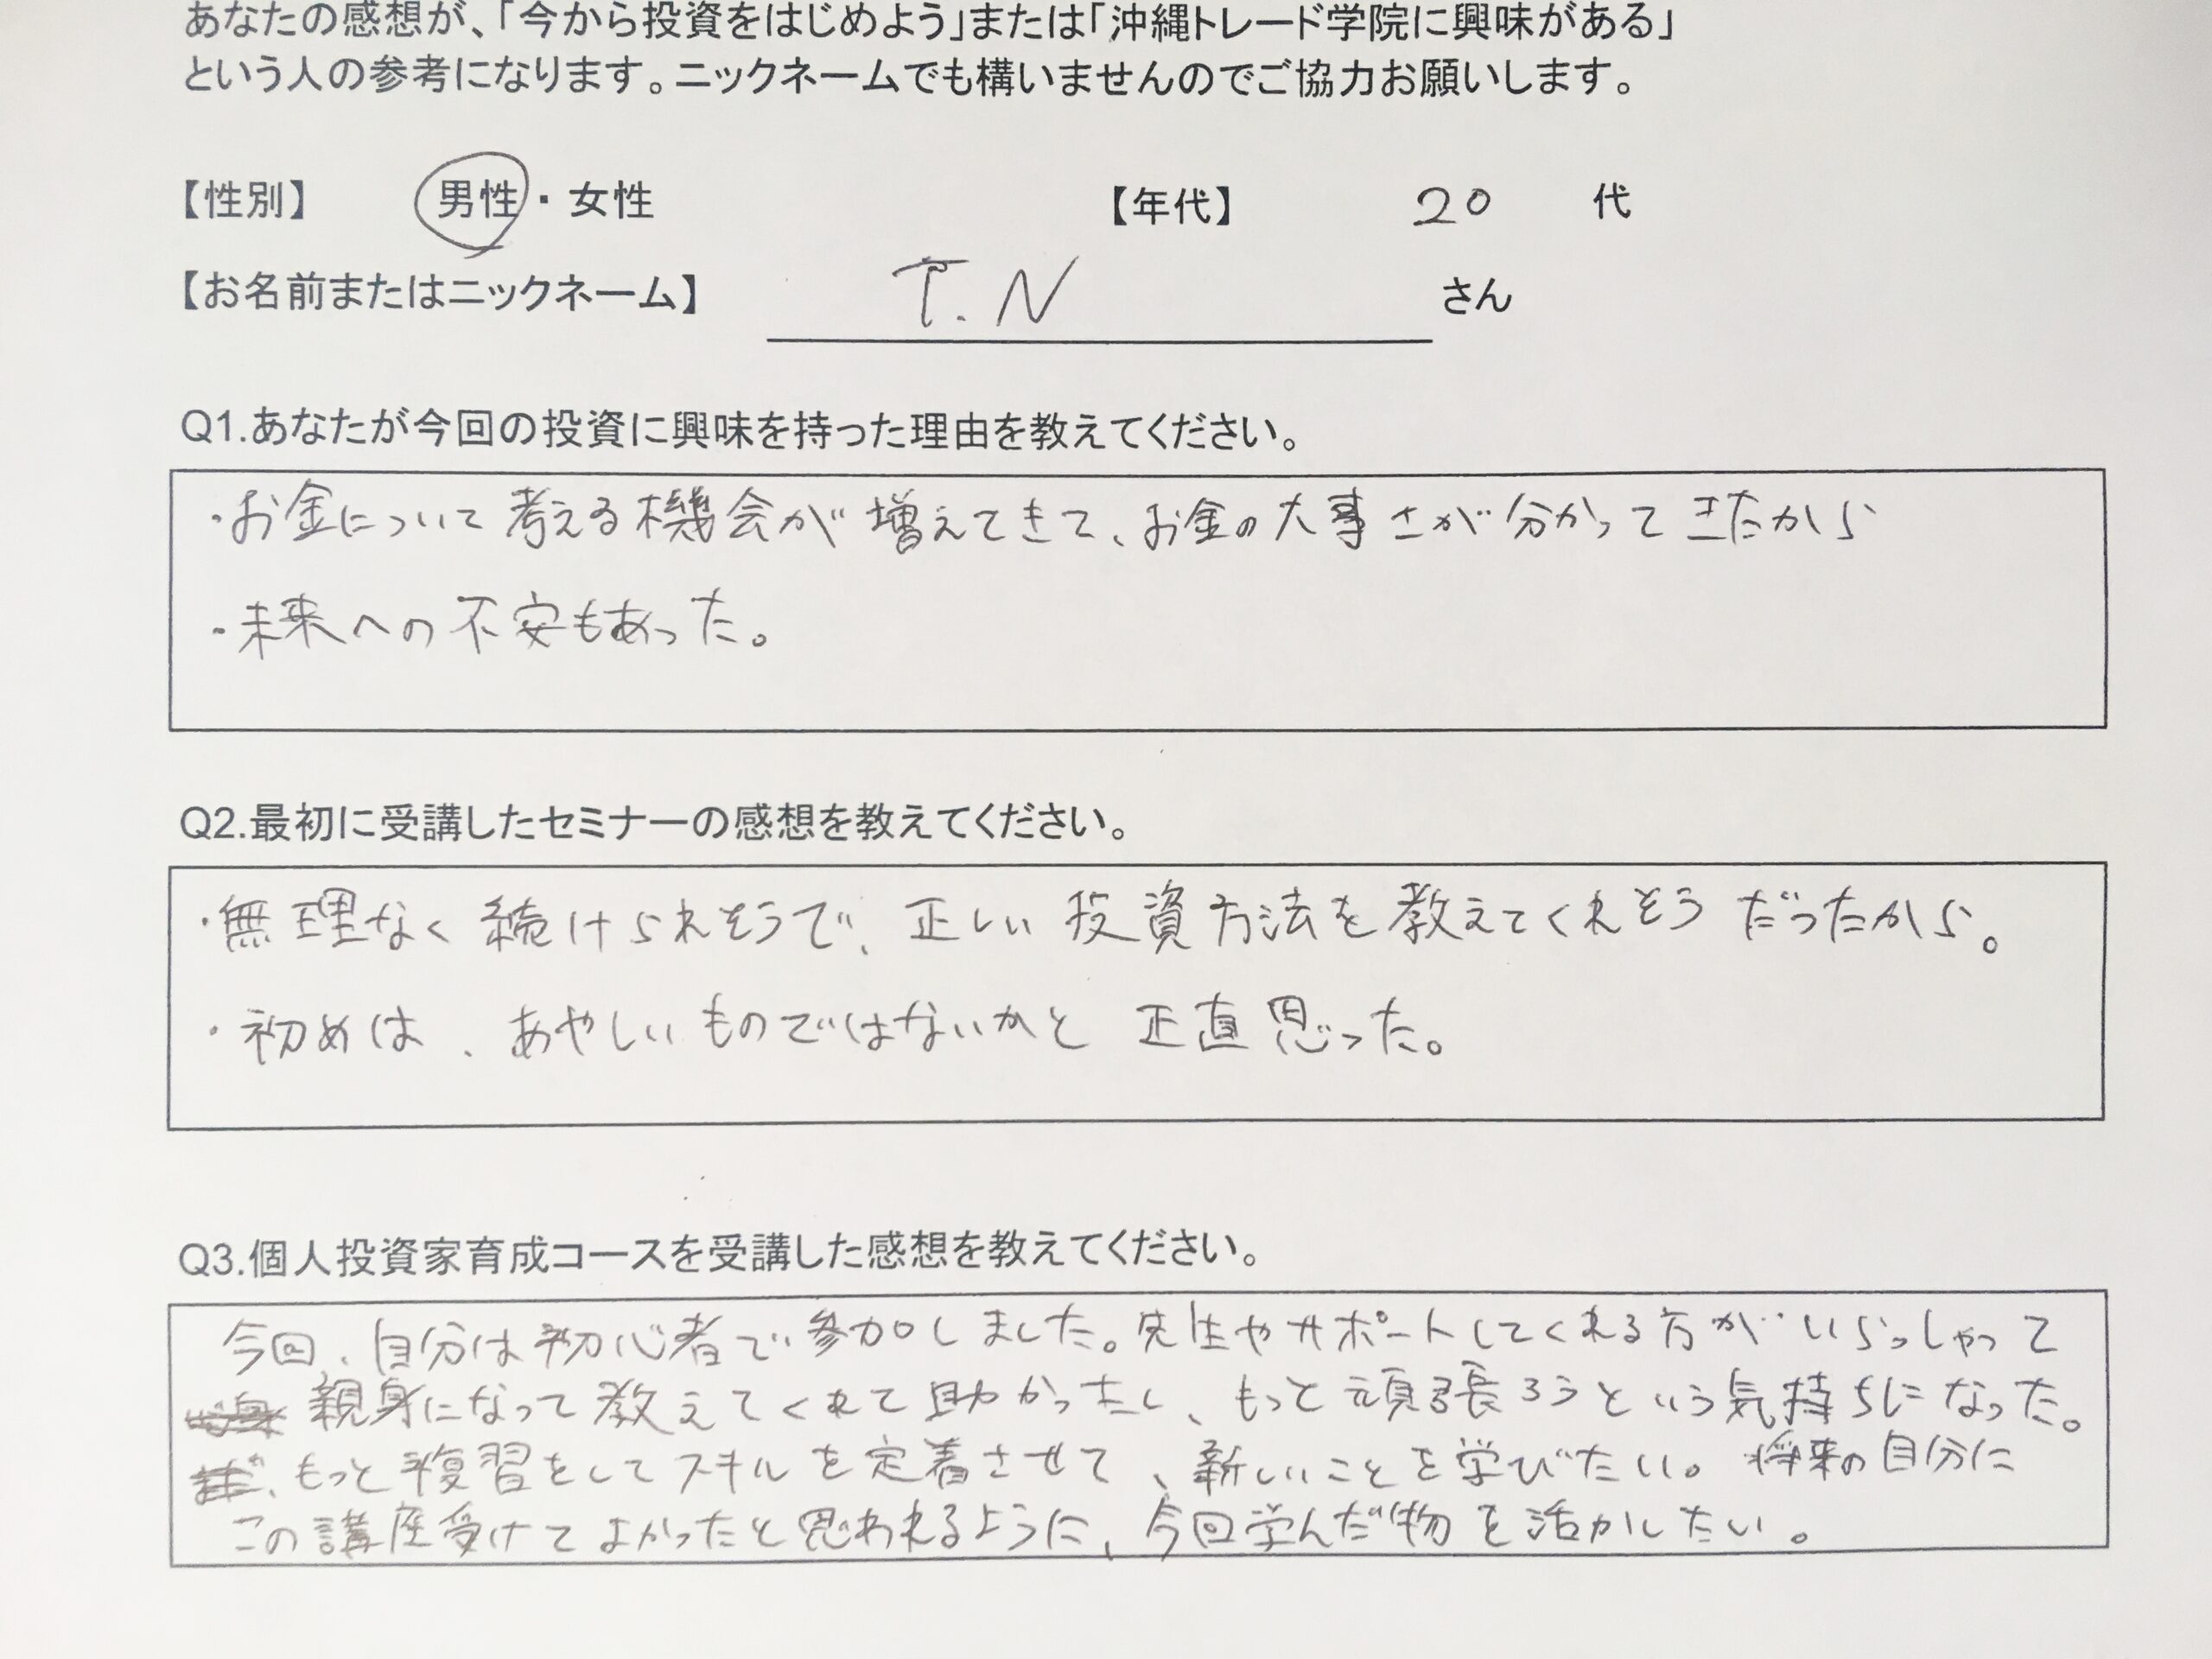 あなたの感想が、「今から投資をはじめよう」または「沖縄トレード学院に興味がある」
という人の参考になります。ニックネームでも構いませんのでご協力お願いします。
【性別】 男性・女性 【年代】 20 代
【お名前またはニックネーム】 T.N さん
Q1.あなたが今回の投資に興味を持った理由を教えてください。
・お金について考える機会が増えてきて、お金の大事さが分かってきたから
・未来への不安もあった。
Q2.最初に受講したセミナーの感想を教えてください。
・無理なく続けられそうで、正しい投資方法を教えてくれそうだったから。
・初めは、あやしいものではないかと正直思った。
Q3.個人投資家育成コースを受講した感想を教えてください。
今回、自分は初心者で参加しました。先生やサポートしてくれる方がいらっしゃって
親身になって教えてくれて助かったし、もっと頑張ろうという気持ちになった。
もっと復習をしてスキルを定着させて、新しいことを学びたい。将来の自分に
この講座受けてよかったと思われるように、今回学んだ物を活かしたい。